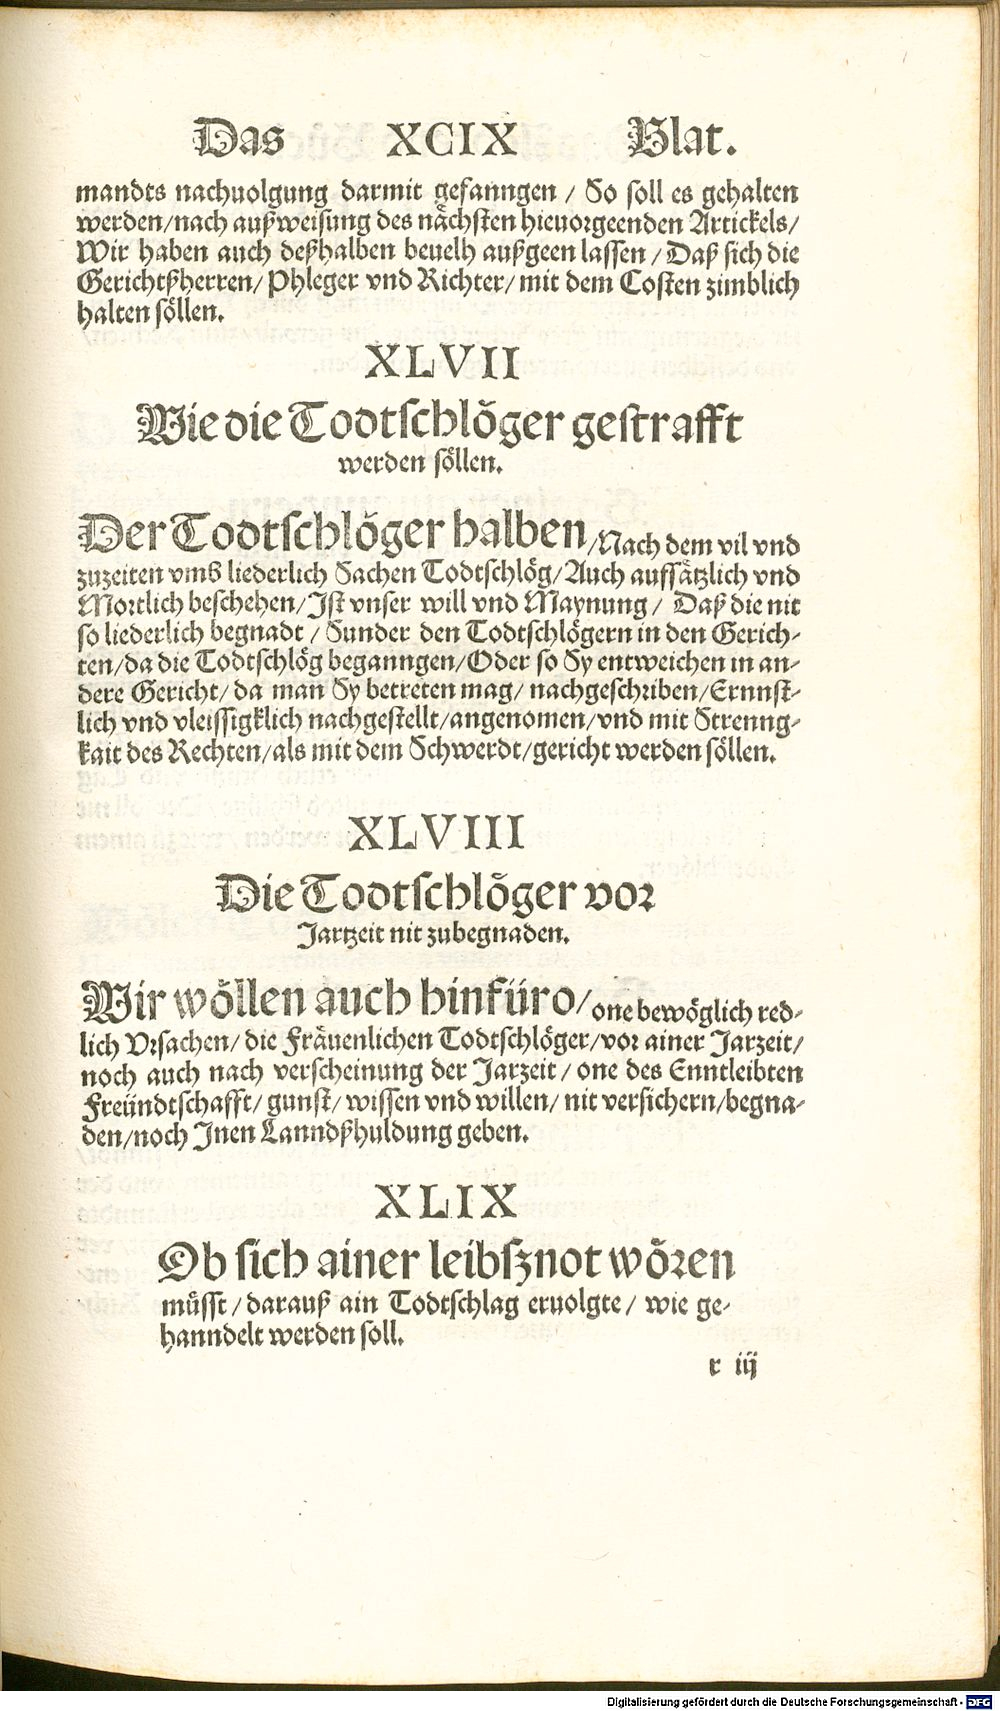 Das XCIX Blat.
mandts nachuolgung darmit gefanngen / So soll es gehalten
werden/nach außweisung des nächsten hieuorgeenden Artickels/
Wir haben auch deßhalben beuelh außgeen lassen / Daß sich die
Gerichtßherren/ Phleger vnd Richter/ mit dem Costen zimblich
halten söllen.
XLVII
Wie die Todtschlöger gestrafft
werden söllen.
Der Todtschlöger halben/Nach dem vil vnd
zuzeiten vmb liederlich Sachen Todtschlög/Auch auffsätzlich vnd
Mortlich beschehen/Ist vnser will vnd Maynung/ Daß die nit
so liederlich begnadt / Sunder den Todtschlögern in den Gerich-
ten/da die Todtschlög beganngen/Oder so Sy entweichen in an-
dere Gericht/ da man Sy betreten mag/ nachgeschriben/Ernnst-
lich vnd vleissigklich nachgestellt/angenomen/vnd mit Strenng-
kait des Rechten/als mit dem Schwerdt/gericht werden söllen.
XLVIII
Die Todtschlöger vor
Jartzeit nit zubegnaden.
Wir wöllen auch hinfüro/one bewöglich red-
lich Vrsachen/ die Fräuenlichen Todtschlöger/vor ainer Jarzeit/
noch auch nach verscheinung der Jarzeit / one des Enntleibten
Freündtschafft/ gunst/ wissen vnd willen/ nit versichern/begna-
den/noch Inen Lanndßhuldung geben.
XLIX
Ob sich ainer leibsznot wören
müsst / darauß ain Todtschlag eruolgte/ wie ge-
hanndelt werden soll.
r iij
Digitalisierung gefördert durch die Deutsche Forschungsgemeinschaft - DFG